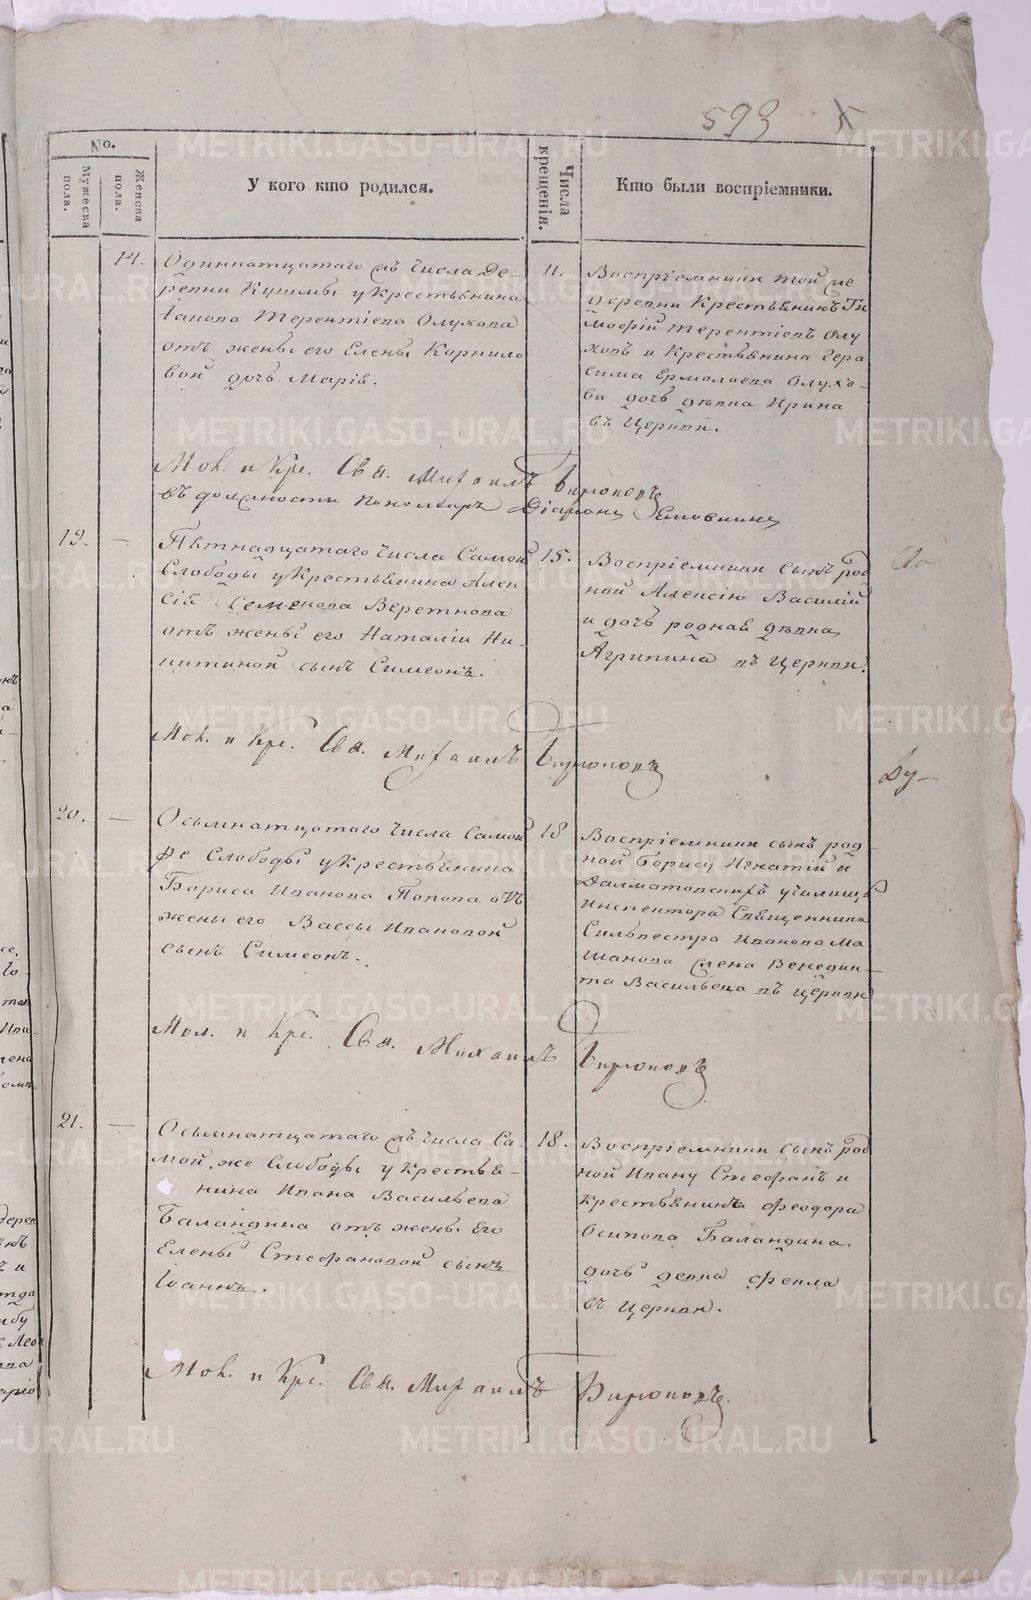 593 5
No.
Мужеска пола.
Женска пола.
У кого кто родился.
Числа крещенія.
Кто были воспріемники.
14.
Одиннатцатаго съ числа Де-
ревни Кушмы у Крестьянина
Іанова Терентіева Олухова
отъ жены его Елены Корнило
вой дочь Марія.
11.
Воспріемники той же
деревни Крестьянинъ Ти
мофій Терентіевъ Олу
ховъ и Крестьянина Гера
сима Ермолаева Олухо-
ва дочь дѣвка Ирина
въ Церкви.
Мол. и Кре. Свя. Михаилъ Бирюковъ
въ должности Пономаря Діаконъ
19. —
Пятнадцатаго числа Самой
Слободы у Крестьянина Алек
сія Семенова Веретнова
отъ жены его Наталіи Ни-
китиной сынъ Симеонъ.
15.
Воспріемники сынъ род
ной Алексію Василій
и дочь родная дѣвка
Агрипина въ Церкви.
Мол. и Кре. Свя. Михаилъ Бирюковъ
Ду—
20. —
Осьмнатцатаго числа Самой
же Слободы у Крестьянина
Бориса Иванова Попова отъ
жены его Вассы Ивановой
сынъ Симеонъ.
18
Воспріемники сынъ род-
ной Борису Игнатій и
Далматовскихъ училищъ
Инспектора Священника
Сильвестра Иванова Ма
шанова жена Венедик-
та Васильева въ Церкви
Мол. и Кре. Свя. Михаилъ Бирюковъ
21. —
Осьмнатцатаго съ числа Са-
мой же Слободы у Крестья-
нина Ивана Васильева
Баландина отъ жены Его
Елены Стефановой сынъ
Іоаннъ.
18.
Воспріемники сынъ род
ной Ивану Стефанъ и
Крестьянина Феодора
Осипова Баландина
дочь девка Фекла
въ Церкви.
Мол. и Кре. Свя. Михаилъ Бирюковъ.
METRIKI.GASO-URAL.RU